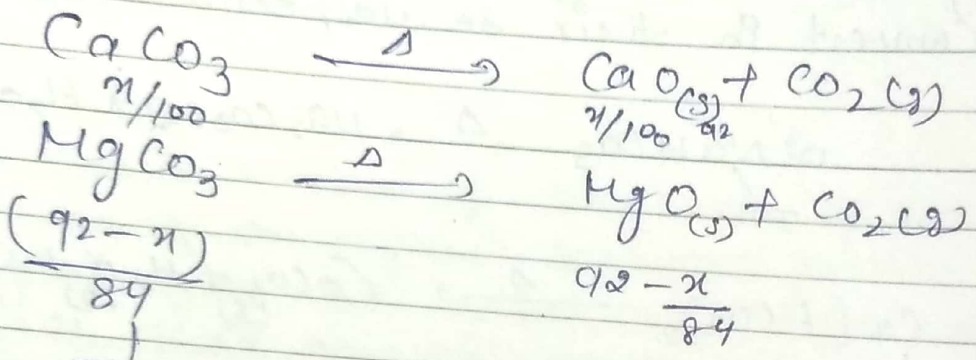 CaCO3 —Δ→ CaO(s) + CO2(g)
x/100 x/100 92
MgCO3 —Δ→ MgO(s) + CO2(g)
(92-x)/84 92-x/84